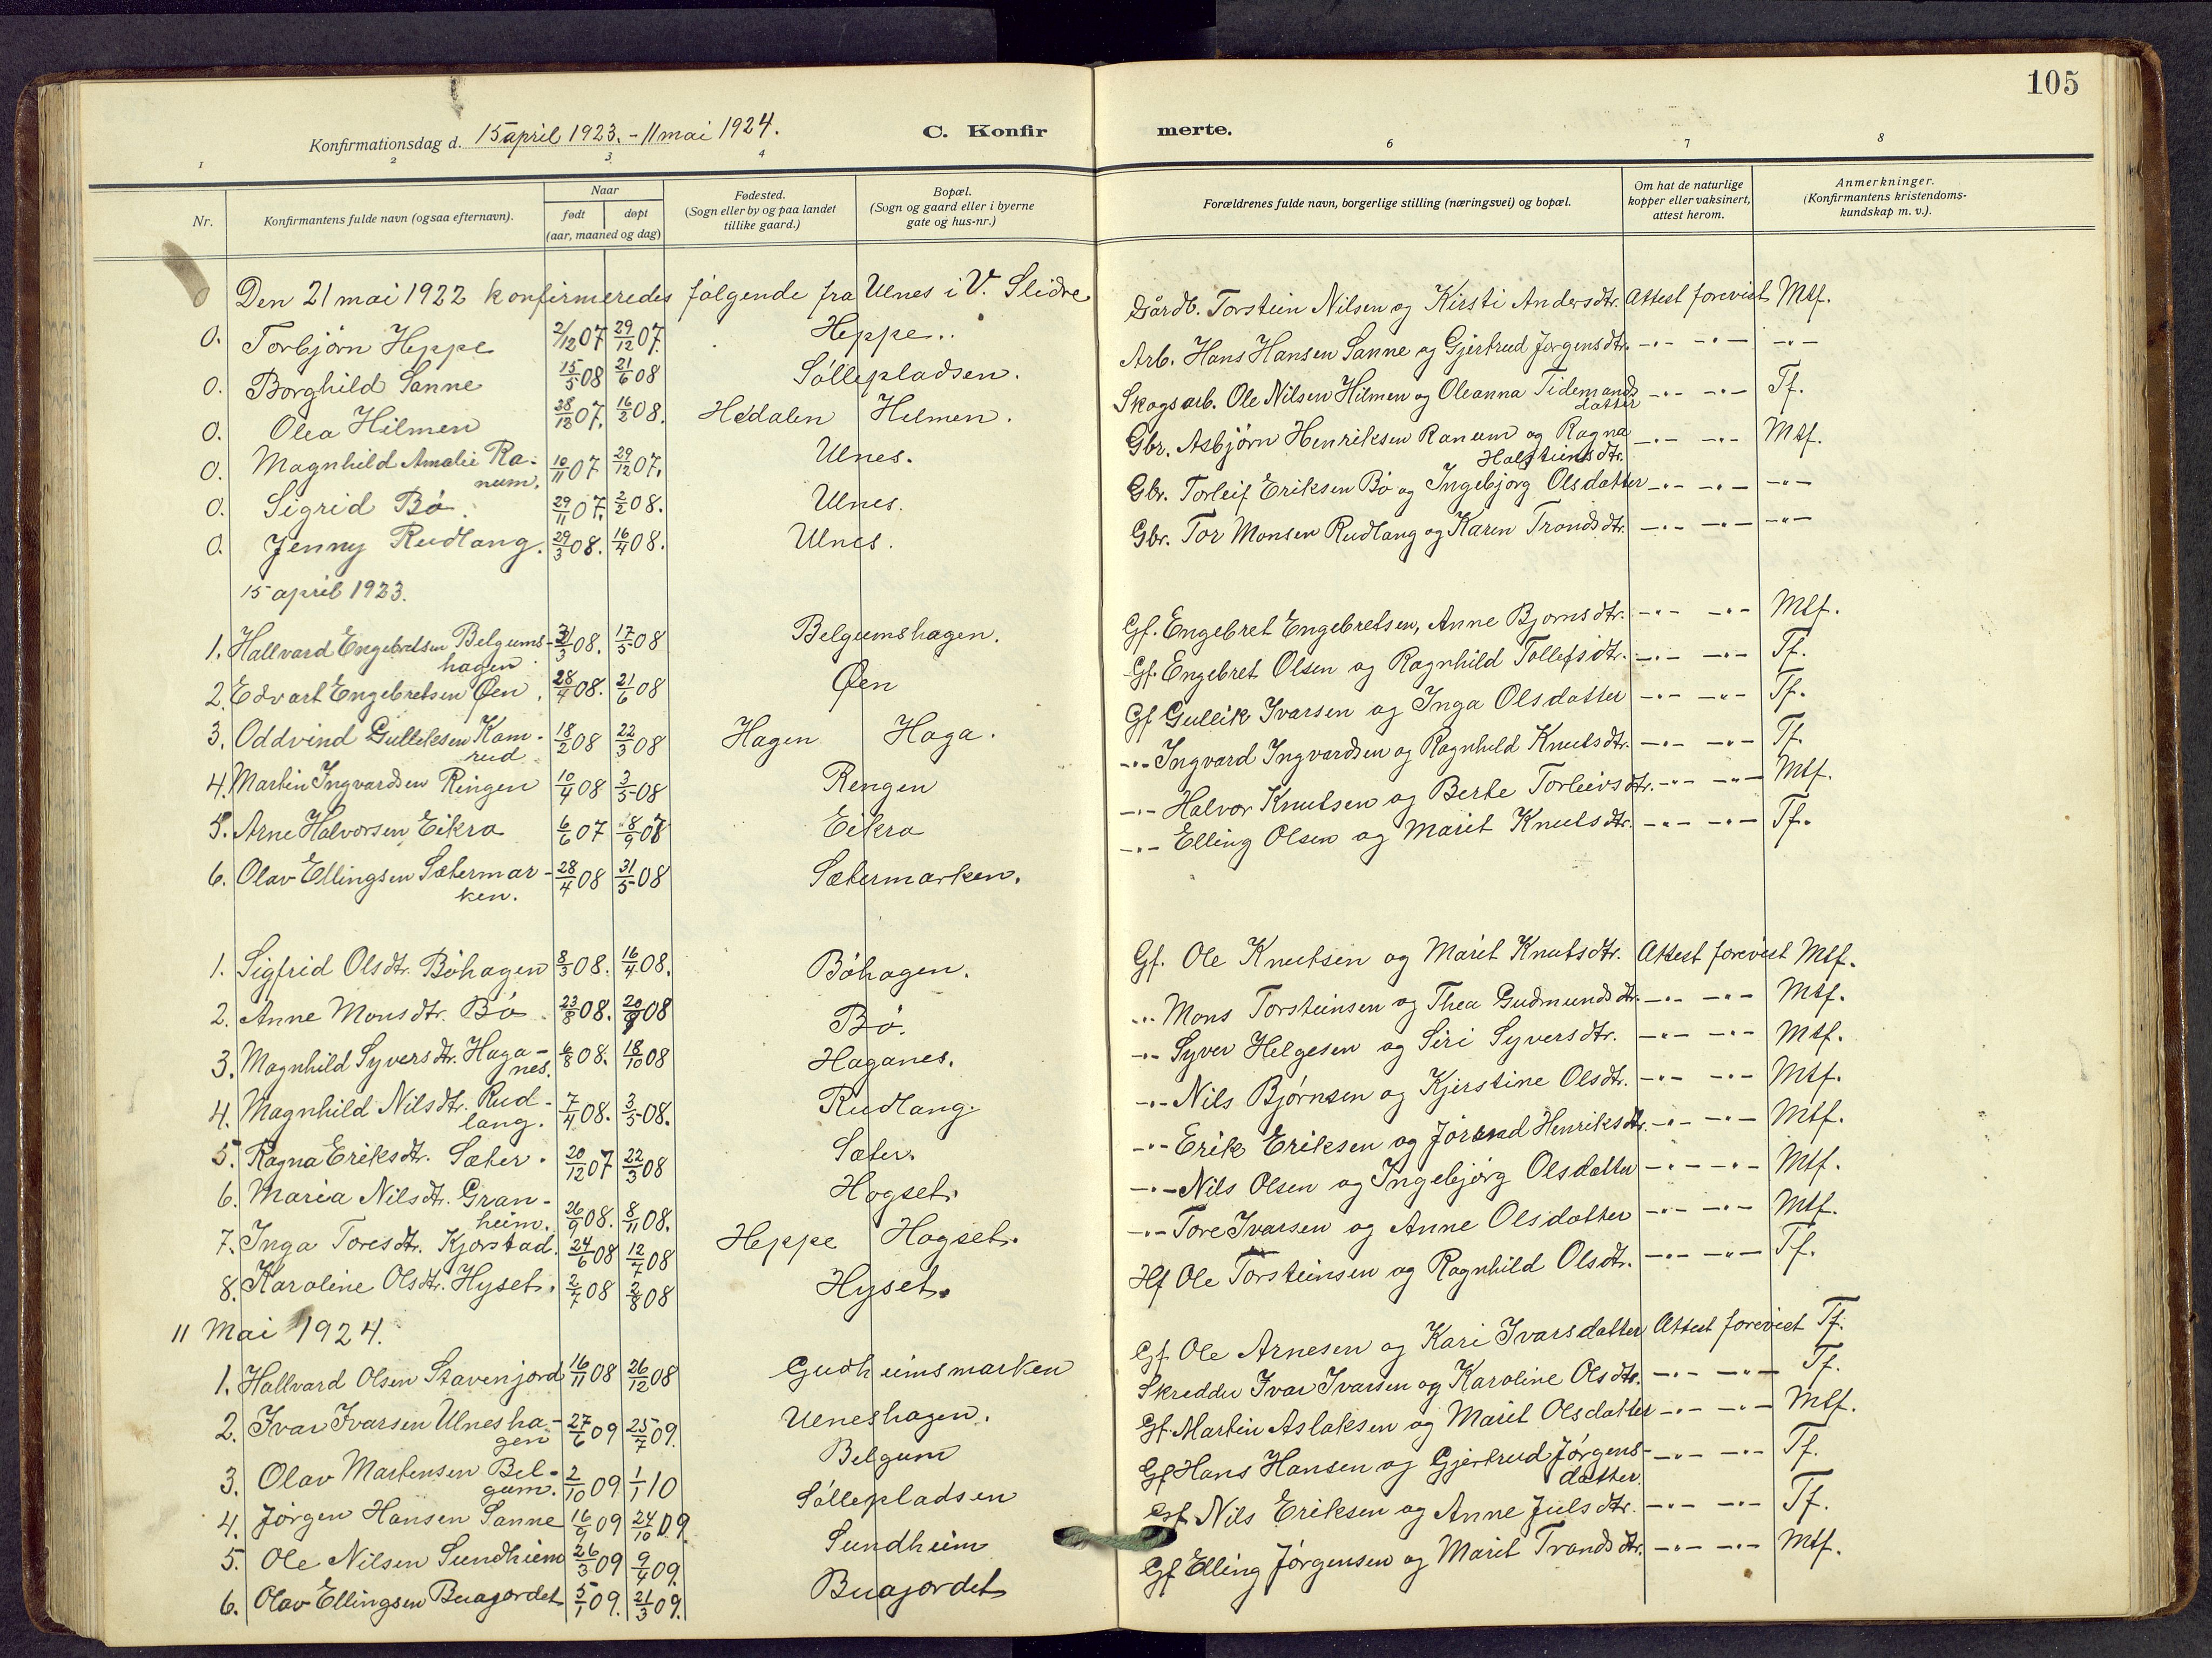 105
Konfirmationsdag d. 15 april 1923. - 11 mai 1924. C. Konfirmerte.
1 2 3 4 6 7 8
Nr. Konfirmantens fulde navn (ogsaa efternavn). Naar født døpt (aar, maaned og dag) Fødested. (Sogn eller by og paa landet tillike gaard.) Bopæl. (Sogn og gaard eller i byerne gate og hus-nr.) Forældrenes fulde navn, borgerlige stilling (næringsvei) og bopæl. Om hat de naturlige kopper eller vaksinert, attest herom. Anmerkninger. (Konfirmantens kristendomskundskap m. v.).
0 Den 21 mai 1922 konfirmeredes følgende fra Ulnes i V. Slidre
0. Torbjørn Heppe 2/12 07 29/12 07. Heppe.. Gårdb. Torstein Nilsen og Kirsti Andersdtr. Attest forevist Mtf.
0. Borghild Sanne 15/5 08 21/6 08 Søllepladsen. Arb. Hans Hansen Sanne og Gjertrud Jørgensdtr. -"- -"- -"-
0. Olea Hilmen 28/12 07. 16/2 08. Hedalen Hilmen. Skogsarb. Ole Nilsen Hilmen og Oleanna Tidemandsdatter -"- -"- Tf.
0. Magnhild Amalie Ranum. 10/11 07 29/12 07. Ulnes. Gbr. Asbjørn Henriksen Ranum og Ragna Halsteinsdtr. -"- -"- Mtf.
0. Sigrid Bø. 29/11 07. 2/2 08. Ulnes. Gbr. Torleif Eriksen Bø og Ingebjørg Olsdatter -"- -"- -"-
0. Jenny Rudlang. 29/3 08. 16/4 08. Ulnes. Gbr. Tor Monsen Rudlang og Karen Trondsdtr. -"- -"- -"-
15 april 1923.
1. Hallvard Engebretsen Belgumshagen 31/3 08. 17/5 08 Belgumshagen. Gf. Engebret Engebretsen, Anne Bjørnsdtr. -"- -"- Mtf.
2. Edvart Engebretsen Øen. 28/4 08. 21/6 08 Øen Gf. Engebret Olsen og Ragnhild Tollefsdtr. -"- -"- Tf.
3. Oddvind Gulleksen Kamrud 18/2 08 22/3 08 Hagen Haga. Gf Gulleik Ivarsen og Inga Olsdatter -"- -"- Tf.
4. Martin Ingvardsen Ringen 10/4 08 3/5 08 Rengen -"- Ingvard Ingvardsen og Ragnhild Knutsdtr. -"- -"- Tf.
5. Arne Halvorsen Eikra 6/6 07 8/9 07 Eikra -"- Halvor Knutsen og Berte Torleivsdtr. -"- -"- Mtf.
6. Olav Ellingsen Sætermarken. 28/4 08 31/5 08 Sætermarken. -"- Elling Olsen og Marit Knutsdtr. -"- -"- Tf.
1. Sigfrid Olsdtr. Bøhagen 8/3 08. 16/4 08. Bøhagen. Gf. Ole Knutsen og Marit Knutsdtr. Attest forevist Mtf.
2. Anne Monsdtr. Bø. 23/8 08. 20/9 08 Bø. -"- Mons Torsteinsen og Thea Gudmundsdtr. -"- -"- Mtf.
3. Magnhild Syversdtr. Haganes. 6/8 08. 18/10 08 Haganes. -"- Syver Helgesen og Siri Syversdtr. -"- -"- Mtf.
4. Magnhild Nilsdtr. Rudlang. 7/4 08. 3/5 08. Rudlang. -"- Nils Bjørnsen og Kjerstine Olsdtr. -"- -"- Mtf.
5. Ragna Eriksdtr. Sæter. 20/12 07 22/3 08 Sæter. -"- Erik Eriksen og Jørand Henriksdtr. -"- -"- Mtf.
6. Maria Nilsdtr. Granheim. 26/9 08. 8/11 08. Høgset. -"- Nils Olsen og Ingebjørg Olsdatter -"- -"- Mtf.
7. Inga Toresdtr. Kjørstad. 24/6 08 12/7 08 Heppe Høgset. -"- Tore Ivarsen og Anne Olsdatter -"- -"- Mtf.
8. Karoline Olsdtr. Hyset. 2/7 08 2/8 08 Hyset. Hf Ole Torsteinsen og Ragnhild Olsdtr. -"- -"- Tf.
11 Mai 1924.
1. Hallvard Olsen Stavenjord 16/11 08 26/12 08 Gudheimsmarken Gf. Ole Arnesen og Kari Ivarsdatter Attest forevist Tf.
2. Ivar Ivarsen Ulneshagen 27/6 09 25/7 09. Ulneshagen. Skredder Ivar Ivarsen og Karoline Olsdtr. -"- -"- Tf.
3. Olav Martensen Belgum. 2/10 09 1/1 10 Belgum Gf. Martin Aslaksen og Marit Olsdatter -"- -"- Mtf.
4. Jørgen Hansen Sanne 16/9 09 24/10 09. Søllepladsen Gf Hans Hansen og Gjertrud Jørgensdatter. -"- -"- Tf.
5. Ole Nilsen Sundheim 26/3 09 9/4 09. Sundheim Gf. Nils Eriksen og Anne Julsdtr. -"- -"- Tf.
6. Olav Ellingsen Buajordet 5/1 09. 21/3 09. Buajordet Gf Elling Jørgensen og Marit Trondsdtr. -"- -"- Mtf.